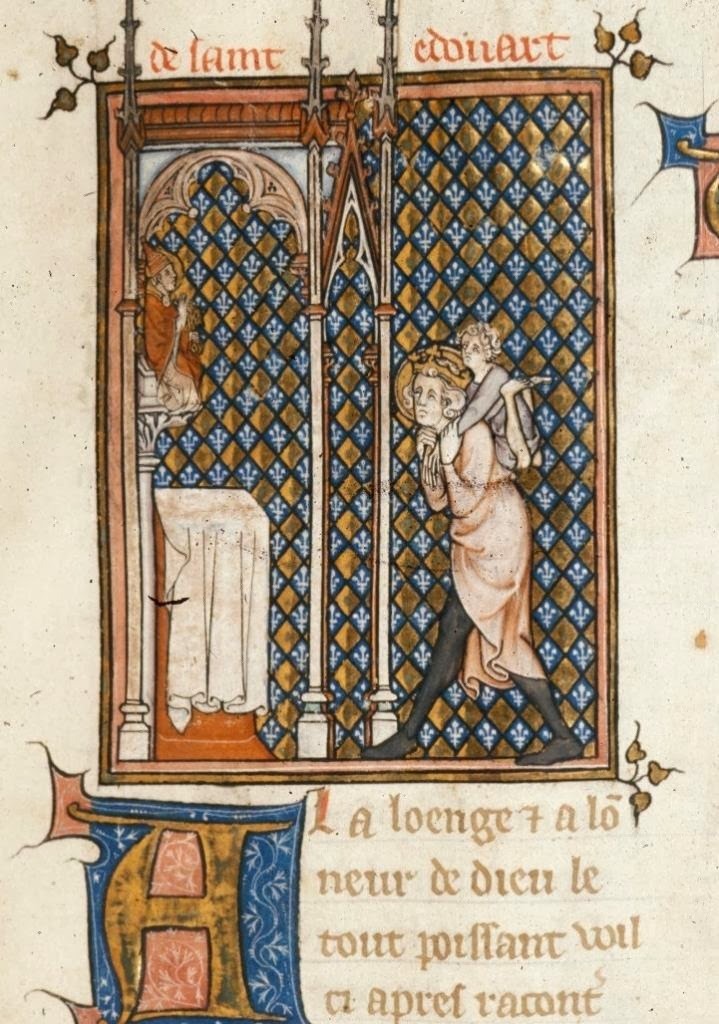 de saint edouart
A la loenge ⁊ a lō
neur de dieu le
tout poissant voil
ci apres racont